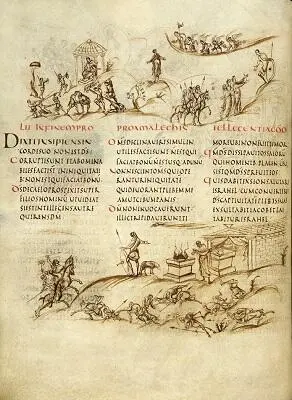 DIXIT INSIPIENS IN
CORDE SUO NON EST DS
CORRUPTI SUNT ET ABOMINA
BILES FACTI SUNT IN INIQUITATIB
NON EST QUI FACIAT BONU
DS DE CAELO PROSPEXIT SUPER
FILIOS HOMINU UT UIDEAT
SI EST INTELLEGENS AUT RE
QUIRENS DM
PRO AMALECH IN
OMS DECLINAUER SIMUL IN
UTILES FACTI SUNT NON EST QUI
FACIAT BONU NON EST USQ AD UNU
NONNE SCIENT OMS QUI OPE
RANTUR INIQUITATE
QUI DEUORANT PLEBEM ME
AM UT CIBUM PANIS
DM NON INUOCAUERUNT
ILLIC TREPIDAUERUNT TI
MORE UBI NON FUIT TIMOR
QM DS DISSIPAT OSSA EOR
QUI HOMINIB PLACENT CON
FUSI SUNT QM DS SPREUIT EOS
QUIS DABIT EX SION SALUTARE
ISRAHEL CUM CONUERTERIT DS
CAPTIUITATE PLEBIS SUAE
EXSULTABIT IACOB ET LAE
TABITUR ISRAHEL